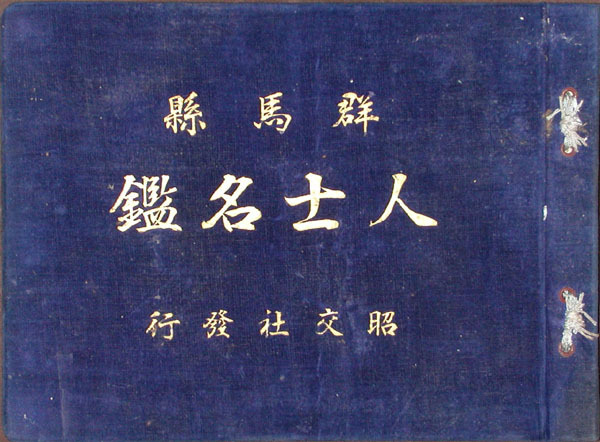 群馬縣
人士名鑑
昭交社發行